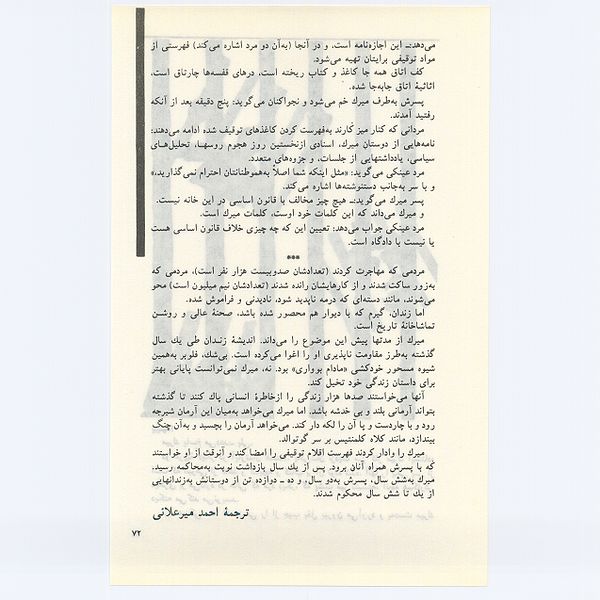 می‌دهد:ـ این اجازه‌نامه است، و در آنجا (به‌آن دو مرد اشاره می‌کند) فهرستی از
مواد توقیفی برایتان تهیه می‌شود.
کف اتاق همه جا کاغذ و کتاب ریخته است، درهای قفسه‌ها چارتاق است،
اثاثیهٔ اتاق جابه‌جا شده.
پسرش به‌طرف میرك خم می‌شود و نجواکنان می‌گوید: پنج دقیقه بعد از آنکه
رفتید آمدند.
مردانی که کنار میز کارند به‌فهرست کردن کاغذهای توقیف شده ادامه می‌دهند:
نامه‌هایی از دوستان میرك، اسنادی ازنخستین روز هجوم روسها، تحلیل‌های
سیاسی، یادداشتهایی از جلسات، و جزوه‌های متعدد.
مرد عینکی می‌گوید: «مثل اینکه شما اصلاً به‌هموطنانتان احترام نمی‌گذارید،»
و با سر به‌جانب دستنوشته‌ها اشاره می‌کند.
پسر میرك می‌گوید:ـ هیچ چیز مخالف با قانون اساسی در این خانه نیست.
و میرك می‌داند که این کلمات خود اوست، کلمات میرك است.
مرد عینکی جواب می‌دهد: تعیین این که چه چیزی خلاف قانون اساسی هست
یا نیست با دادگاه است.
***
مردمی که مهاجرت کردند (تعدادشان صدوبیست هزار نفر است)، مردمی که
به‌زور ساکت شدند و از کارهایشان رانده شدند (تعدادشان نیم میلیون است) محو
می‌شوند، مانند دسته‌ای که درمه ناپدید شود، نادیدنی و فراموش شده.
اما زندان، گیرم که با دیوار هم محصور شده باشد، صحنهٔ عالی و روشن
تماشاخانهٔ تاریخ است.
میرك از مدتها پیش این موضوع را می‌داند. اندیشهٔ زندان طی یك سال
گذشته به‌طرز مقاومت ناپذیری او را اغوا می‌کرده است. بی‌شك، فلوبر به‌همین
شیوه مسحور خودکشی «مادام بوواری» بود. نه، میرك نمی‌توانست پایانی بهتر
برای داستان زندگی خود تخیل کند.
آنها می‌خواستند صدها هزار زندگی را ازخاطرهٔ انسانی پاك کنند تا گذشته
بتواند آرمانی بلند و بی خدشه باشد. اما میرك می‌خواهد به‌میان این آرمان شیرجه
رود و با چاردست و پا آن را لکه دار کند. می‌خواهد آرمان را بچسبد و به‌آن چنگ
بیندازد، مانند کلاه کلمنتیس بر سر گوتوالد.
میرك را وادار کردند فهرست اقلام توقیفی را امضا کند و آنوقت از او خواستند
که با پسرش همراه آنان برود. پس از یك سال بازداشت نوبت به‌محاکمه رسید.
میرك به‌شش سال، پسرش به‌دو سال، و ده ـ دوازده تن از دوستانش به‌زندانهایی
از یك تا شش سال محکوم شدند.
ترجمهٔ احمد میرعلائی
۷۲